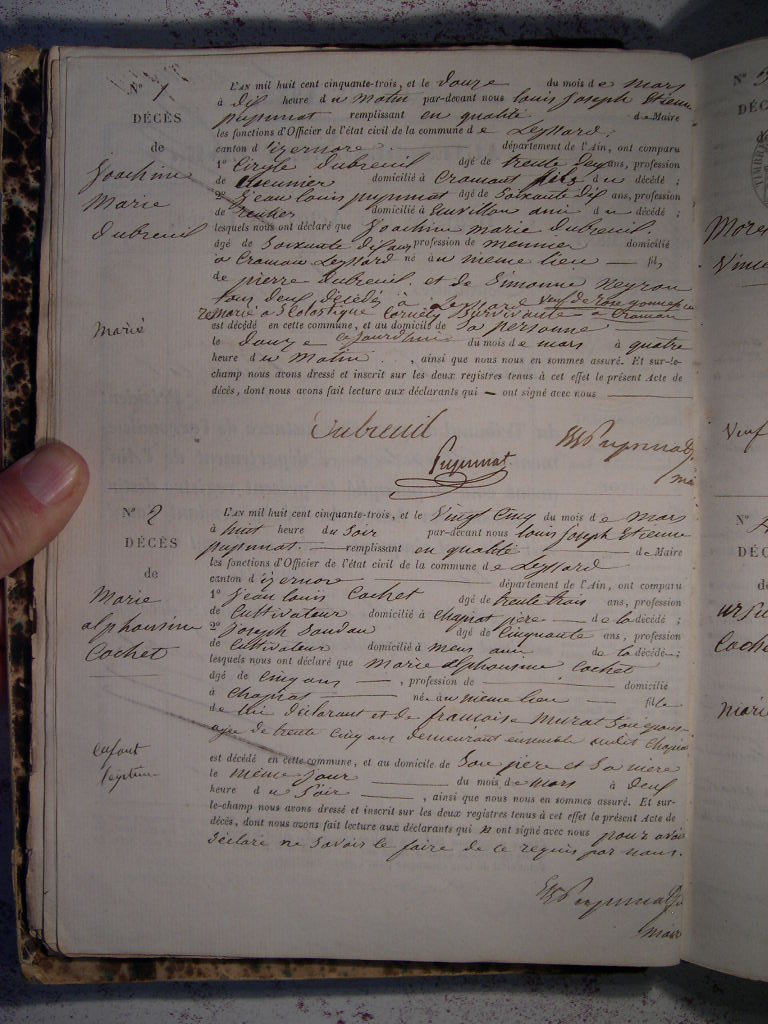 N° 1
DÉCÈS
de
Joachim
Marie
Dubreuil
Marié
L'AN mil huit cent cinquante-trois, et le douze du mois de mars
à dix heure du Matin par-devant nous louis joseph Etienne
puymnat remplissant en qualité de Maire
les fonctions d'Officier de l'état civil de la commune de Leyssard,
canton d'izernore département de l'Ain, ont comparu
1° Cirylle Dubreuil âgé de trente deux ans, profession
de Meunier domicilié à Cramant fils du décédé ;
2° jean louis puymnat âgé de Soixante dix ans, profession
de Rentier domicilié à ami du décédé ;
lesquels nous ont déclaré que Joachim marie Dubreuil
âgé de Soixante dix ans profession de meunier domicilié
à Cramant Leyssard né au même lieu fils
de pierre Dubreuil et de Simonne Neyron
tous deux décédés à Leyssard veuf de rose
remarié à Scolastique Survivante à Cramant
est décédé en cette commune, et au domicile de Sa personne
le Douze ajourd'hui du mois de mars à quatre
heure du Matin, ainsi que nous nous en sommes assuré. Et sur-le-
champ nous avons dressé et inscrit sur les deux registres tenus à cet effet le présent Acte de
décès, dont nous avons fait lecture aux déclarants qui — ont signé avec nous
Dubreuil
Puymnat
N° 2
DÉCÈS
de
Marie
alphonsine
Cochet
enfant
L'AN mil huit cent cinquante-trois, et le Vingt Cinq du mois de Mars
à huit heure du Soir par-devant nous louis joseph Etienne
puymnat remplissant en qualité de Maire
les fonctions d'Officier de l'état civil de la commune de Leyssard
canton d'izernore département de l'Ain, ont comparu
1° Jean Louis Cochet âgé de trente trois ans, profession
de Cultivateur domicilié à chapiat père de la décédé ;
2° Joseph âgé de Cinquante ans, profession
de Cultivateur domicilié à ami de la décédé ;
lesquels nous ont déclaré que Marie alphonsine Cochet
âgé de Cinq ans, profession de domicilié
à Chapiat née au même lieu fille
de lui déclarant et de françoise Murat Son épouse
agée de trente Cinq ans demeurant ensemble audit Chapiat
est décédé en cette commune, et au domicile de Son père et Sa mère
le même jour du mois de mars à Deux
heure du Soir, ainsi que nous nous en sommes assuré. Et sur-
le-champ nous avons dressé et inscrit sur les deux registres tenus à cet effet le présent Acte de
décès, dont nous avons fait lecture aux déclarants qui n'ont signé avec nous pour avoir
déclaré ne Savoir le faire de ce requis par nous.
maire
N°
DÉC